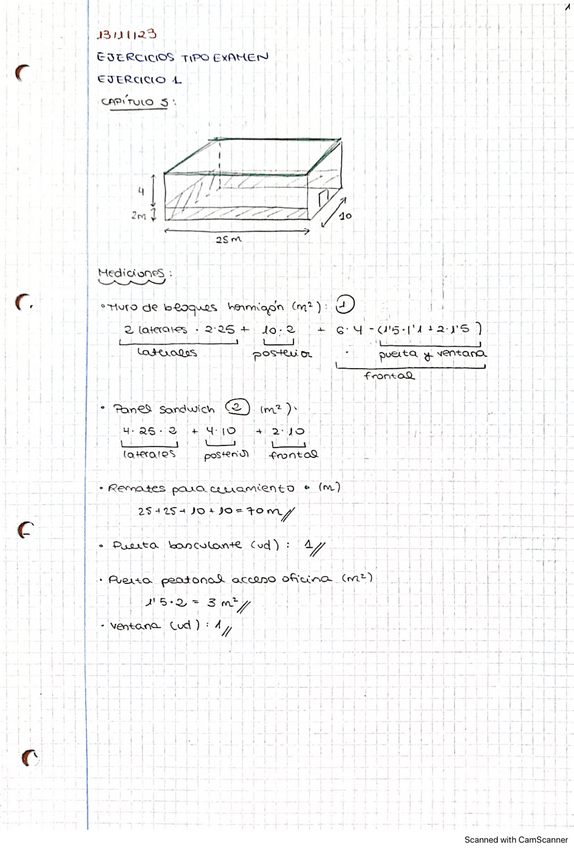 1
13/11/23
EJERCICIOS TIPO EXAMEN
EJERCICIO 1
CAPÍTULO 5:
4
2m
10
25m
Mediciones:
• Muro de bloques hormigón (m²): 1
2 laterales · 2·25 + 10·2 + 6·4 - (1'5·1'1 + 2·1'5)
laterales posterior puerta y ventana
frontal
• Panel sandwich 2 (m²):
4·25·2 + 4·10 + 2·10
laterales posterior frontal
• Remates para cerramiento • (m)
25+25+10+10=70m//
• Puerta basculante (ud): 1//
• Puerta peatonal acceso oficina (m²)
1'5·2 = 3 m²//
• Ventana (ud): 1//
Scanned with CamScanner